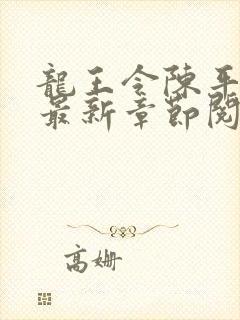 龍王令陳平
最新章節閱
高姍